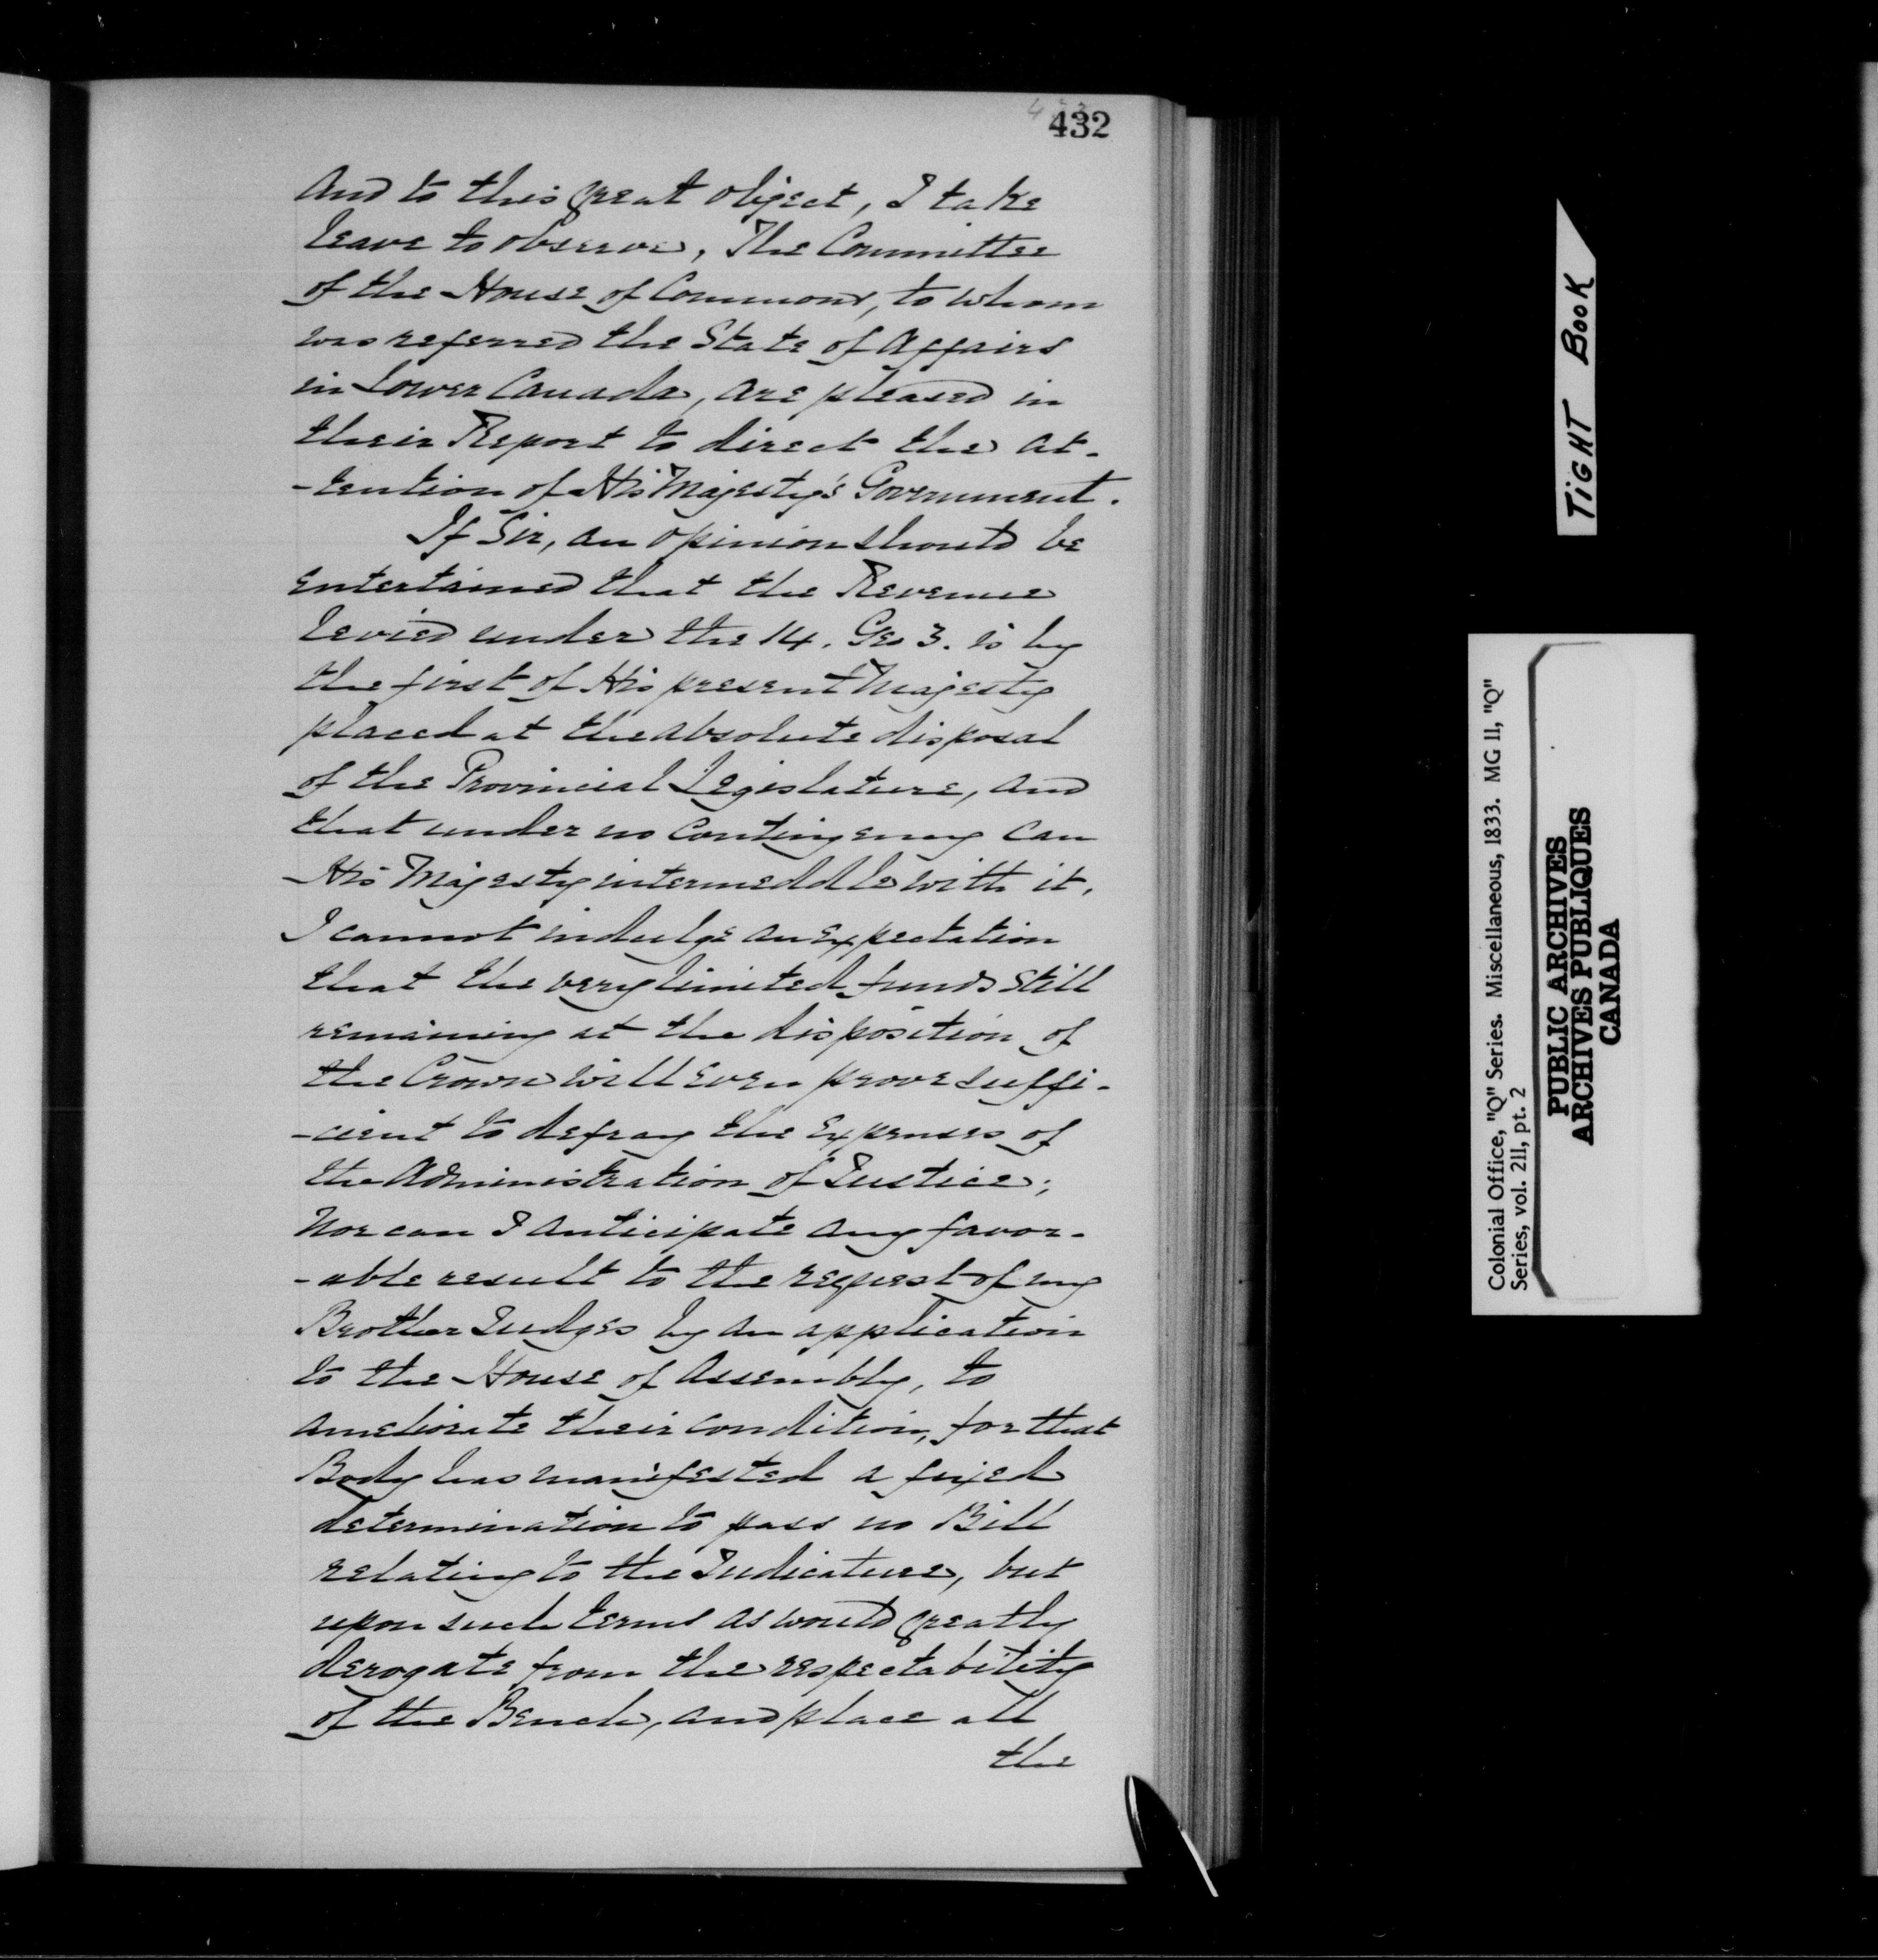 432
And to this great object, I take
leave to observe, The Committee
of the House of Commons, to whom
was referred the State of Affairs
in Lower Canada, are pleased in
their Report to direct the at-
-tention of His Majesty's Government.
If Sir, an opinion should be
entertained that the Revenue
levied under the 14. Geo 3. is by
the first of His present Majesty
placed at the absolute disposal
of the Provincial Legislature, and
that under no contingency can
His Majesty intermeddle with it.
I cannot indulge an expectation
that the very limited funds still
remaining at the disposition of
the Crown will even prove suffi-
-cient to defray the Expenses of
the Administration of Justice;
Nor can I anticipate any favor-
-able result to the request of my
Brother Judges by an application
to the House of Assembly, to
ameliorate their condition, for that
Body has manifested a fixed
determination to pass no Bill
relating to the Judicature, but
upon such terms as would greatly
derogate from the respectability
of the Bench, and place all
the
TIGHT BOOK
Colonial Office, "Q" Series. Miscellaneous, 1833. MG 11, "Q"
Series, vol. 211, pt. 2
PUBLIC ARCHIVES
ARCHIVES PUBLIQUES
CANADA